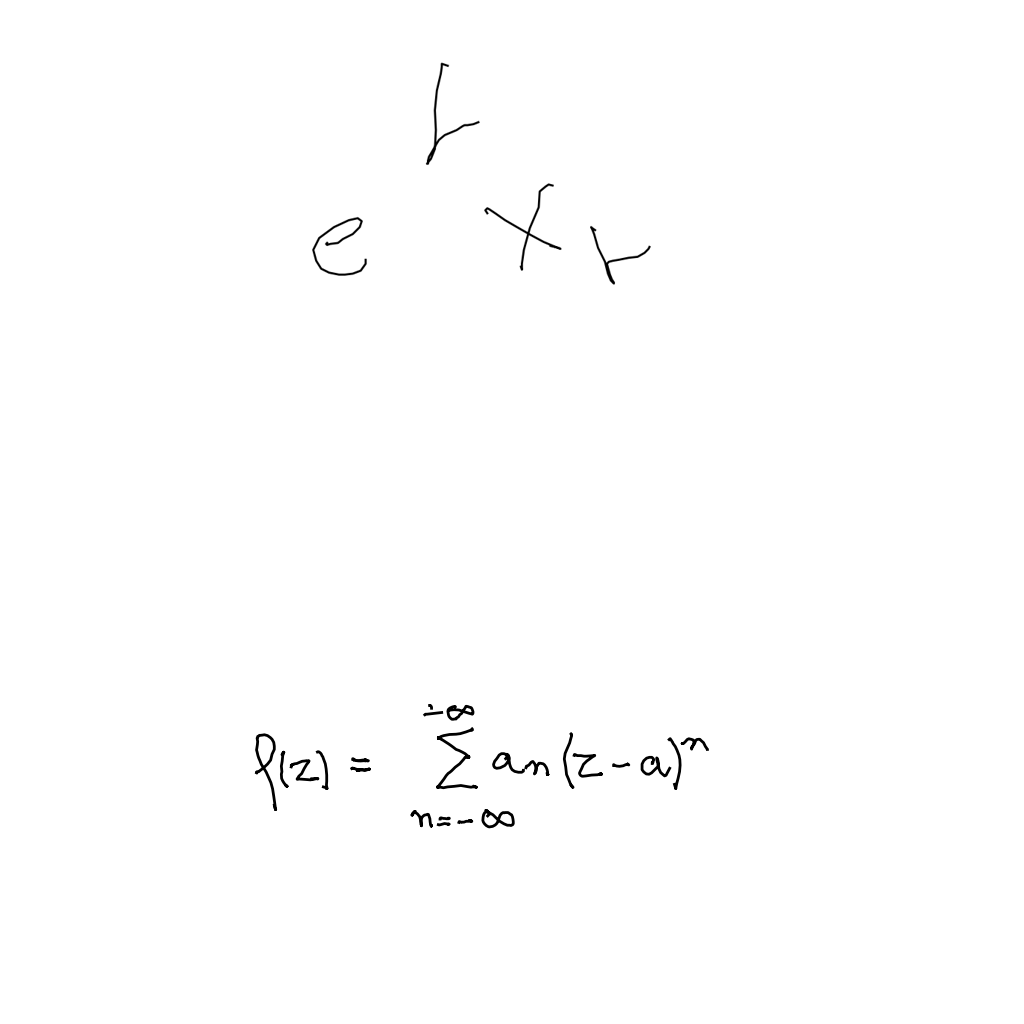 e^r x_r
f(z) = \sum_{n=-\infty}^{-\infty} a_n (z-a)^n